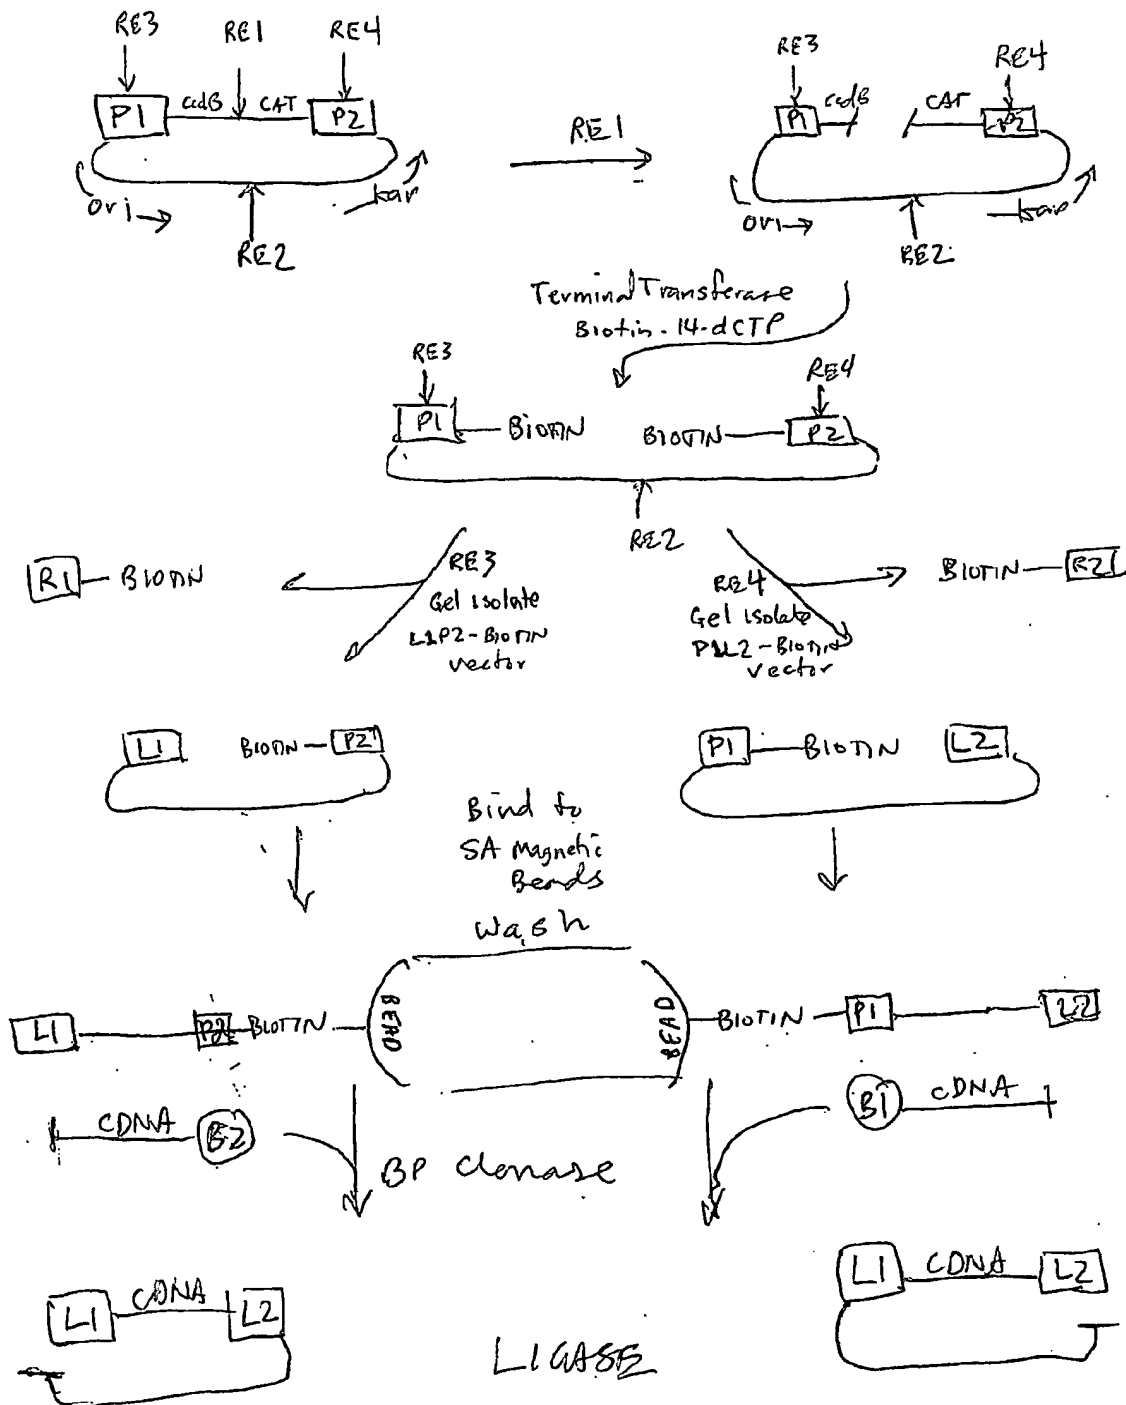 RE3 RE1 RE4
P1 ccdB CAT P2
ori kan
RE2
RE1
RE3 RE4
P1 ccdB CAT P2
ori kan
RE2
Terminal Transferase
Biotin-14-dCTP
RE3 RE4
P1 BIOTIN BIOTIN P2
RE2
R1 BIOTIN
RE3
Gel isolate
L1P2-BIOTIN
vector
RE4
Gel isolate
P1L2-BIOTIN
vector
BIOTIN R2
L1 BIOTIN P2
P1 BIOTIN L2
Bind to
SA Magnetic
Beads
Wash
L1 P2 BIOTIN BEAD
BEAD BIOTIN P1 L2
CDNA B2
B1 cDNA
BP Clonase
L1 CDNA L2
L1 CDNA L2
LIGASE